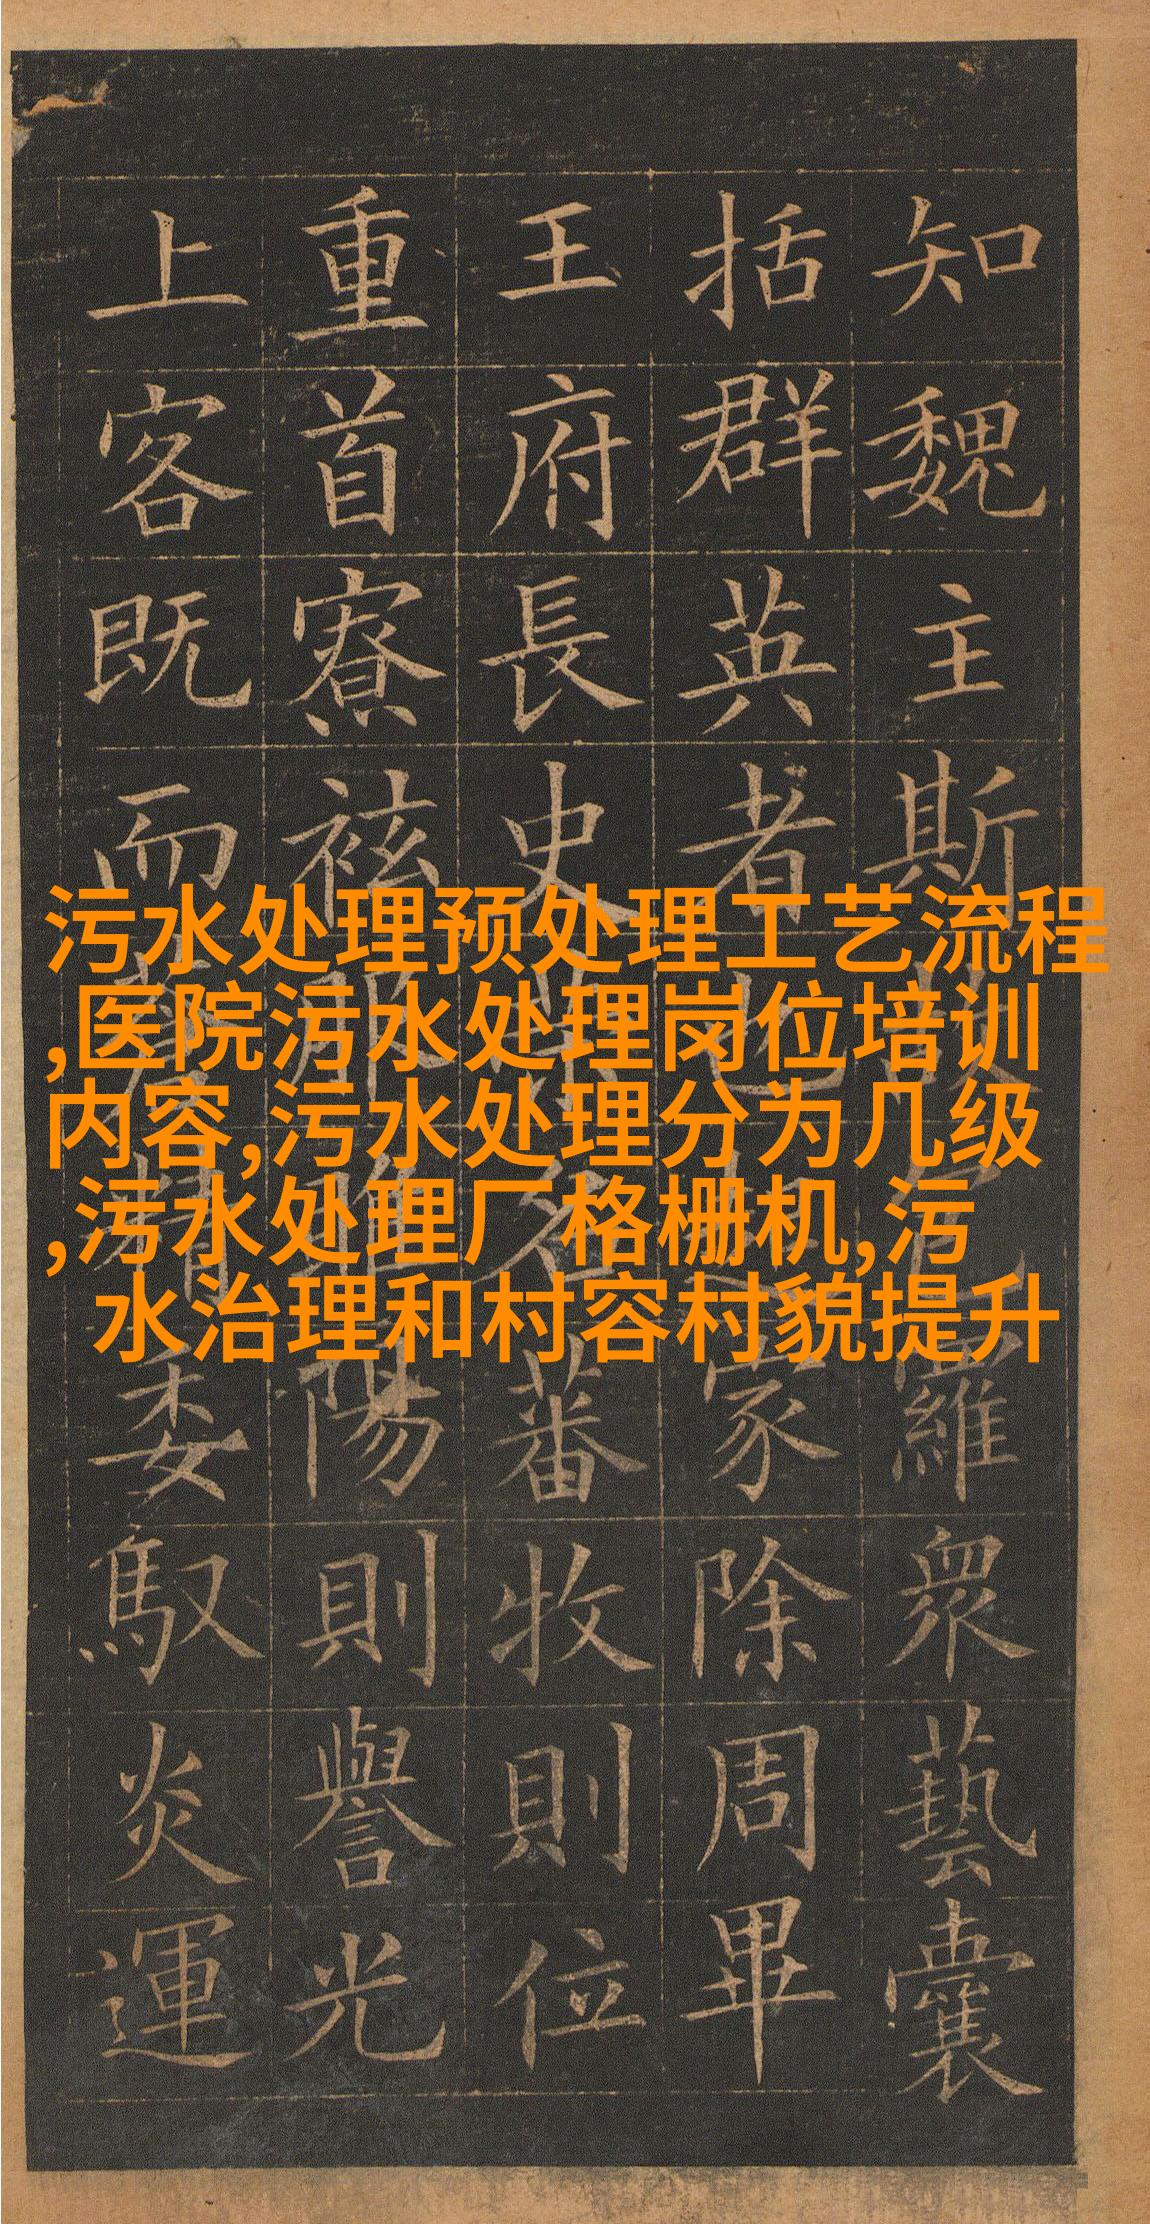 污水处理预处理工艺流程
,医院污水处理岗位培训
内容,污水处理分为几级
,污水处理厂格栅机,污
水治理和村容村貌提升
知魏主斯羅眾藝囊
括群英者也家除周畢
王府長史名蕃牧則位
重首寮袨服陽則譽光
上客既而委馭炎運